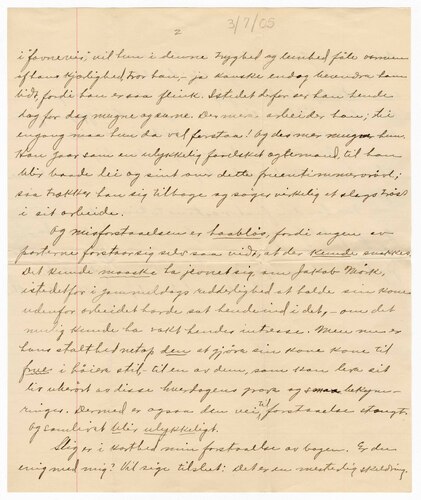 2
3/7/05
i favnevis, vil hun i denne tryghed og lunhed føle varmen
af hans kjærlighed, tror han, – ja kanske endog beundre ham
lidt, fordi han er saa flink. Istedet derfor ser han hende
dag for dag mugne og surne. Des mer arbeider han; – en
engang maa hun da vel forstaa! Og des mer mugner hun.
Han gaar som en ulykkelig forelsket ægtemand, til han
blir baade lei og sint over dette
saa trækker han sig tilbage og søger virkelig et slags trøst
i sit arbeide.
Og misforstaaelsen er haabløs, fordi ingen av
parterne forstaar sig selv saa vidt, at der kunde snakkes.
Det kunde maaske ha jevnet sig, om Jakob Mørk,
istedetfor i gammeldags ridderlighed at holde sin kone
udenfor arbeidet havde sat hende ind i det, – om det
mulig kunde ha vakt hendes intresse. Men nu er
hans stolthed netop den at gjøre sin kone til
frue i høiere stil – til en av dem, som kan leve sit
liv uberørt av disse hverdagens prosa og smaa bekym-
ringer. Dermed er ogsaa den vei til forstaaelse stængt.
Og samlivet blir ulykkeligt.
Slig er i korthed min forstaaelse av bogen. Er du
enig med mig? Vil sige tilslut: Det er en mesterlig skildring